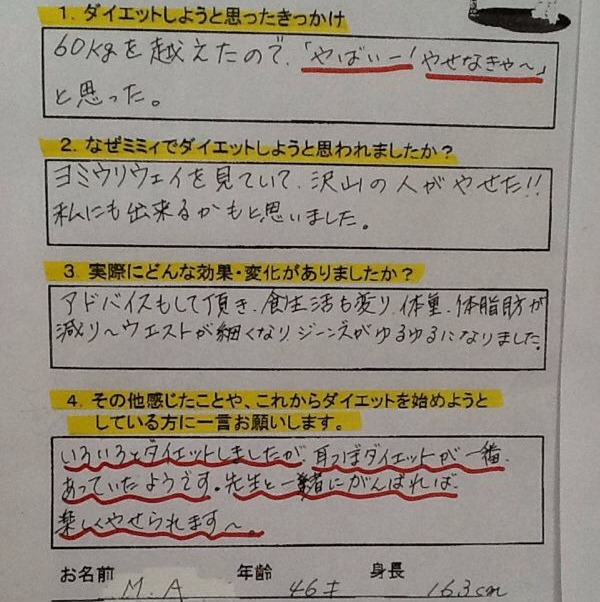 1. ダイエットしようと思ったきっかけ
60kgを越えたので、「やばいー!やせなきゃ〜」
と思った。
2. なぜミミィでダイエットしようと思われましたか?
ヨミウリウェイを見ていて、沢山の人がやせた!!
私にも出来るかもと思いました。
3. 実際にどんな効果・変化がありましたか?
アドバイスもして頂き、食生活も変り、体重、体脂肪が
減り〜ウエストが細くなり、ジーンズがゆるゆるになりました。
4. その他感じたことや、これからダイエットを始めようと
している方に一言お願いします。
いろいろとダイエットしましたが、耳つぼダイエットが一番、
あっていたようです。先生と一緒にがんばれば
楽しくやせられます〜。
お名前 M.A 年齢 46才 身長 163cm